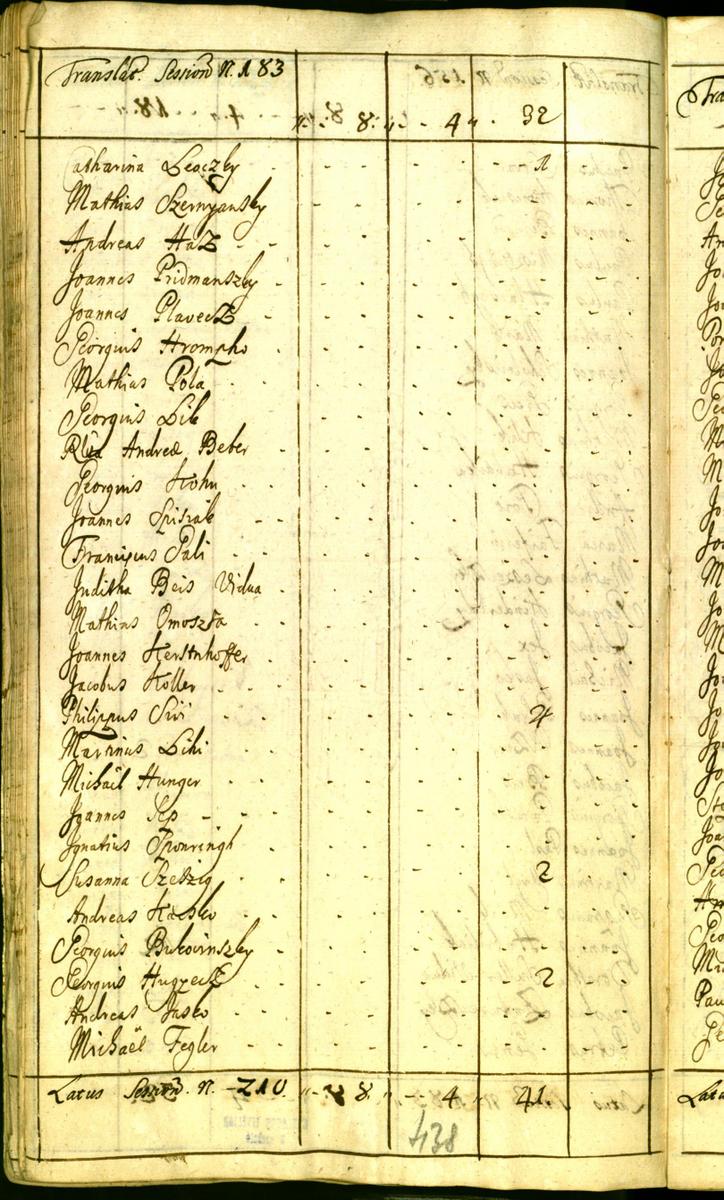 Translat. Session N. 183
8. 4 32
Catharina Leoczky 1
Mathias Szernyansky
Andreas Haz
Joannes Pridmanszky
Joannes Plavecz
Georgius Hrompho
Mathias Pola
Georgius Lib
Andreæ Beber
Georgius Hohn
Joannes Spisiak
Franciscus Pali
Juditha Beis Vidua
Mathias Omoszta
Joannes Herstnhoffer
Jacobus Holler
Philippus Sivi 4
Martinus Lihi
Michaël Hunger
Joannes Sep
Ignatius
Susanna 2
Andreas Hasko
Georgius Bukovinszky
Georgius 2
Andreas Jasko
Michaël Fegler
Latus Session. N. 210. 8. 4 41.
438